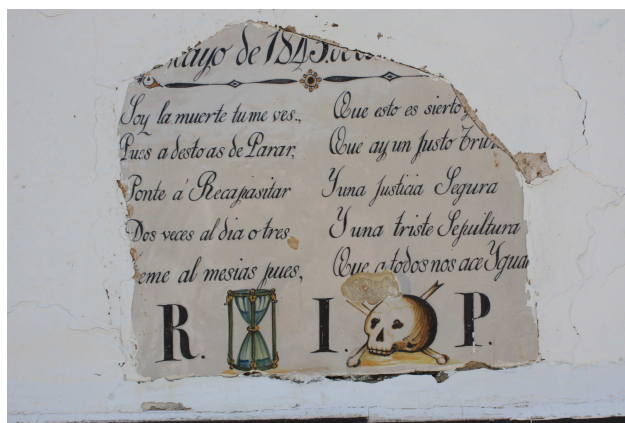 Mayo de 1843.
Soy la muerte tu me ves.,
Pues a desto as de Parar,
Ponte á Recapasitar
Dos veces al dia o tres
Teme al mesias pues,
Que esto es sierto
Que ay un Justo
Y una Justicia Segura
Y una triste Sepultura
Que a todos nos ace Ygua
R. I. P.